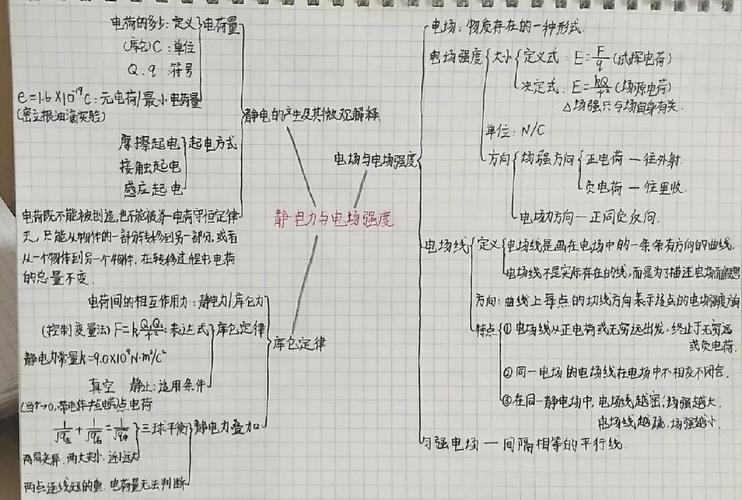 静电力与电场强度
静电的产生及其微观解释
电荷的多少:定义
(库仑)C:单位
Q、q:符号
电荷量
e=1.6×10⁻¹⁹C:元电荷/最小电荷量
(密立根油滴实验)
摩擦起电
接触起电
感应起电
起电方式
电荷既不能被创造,也不能被消
灭,只能从物体的一部分转移到另一部分,或者
从一个物体到另一个物体,在转移过程中电荷
的总量不变.
电荷守恒定律
库仑定律
电荷间的相互作用力:静电力/库仑力
(控制变量法)F=kQ₁Q₂/r²:表达式
静电力常量k=9.0×10⁹N·m²/C²
真空 静止:适用条件
库仑定律
(当r→0,带电体
点电荷
三球平衡
静电力叠加
两同夹异,两大夹小,近小远大
电荷量无法判断
电场与电场强度
电场:物质存在的一种形式.
电场强度
大小
定义式:E=F/q(试探电荷)
决定式:E=kQ/r²(场源电荷)
△场强只与场自身有关.
单位:N/C
方向
场强方向
正电荷—往外射
负电荷—往里收.
电场力方向—正同负反向.
电场线
定义
电场线是画在电场中的一条条有方向的曲线.
电场线不是实际存在的线,而是为了描述电场而假想
方向:曲线上每点的切线方向表示该点的电场强度方向
特点
①电场线从正电荷或无穷远出发,终止于无穷远
或负电荷.
②同一电场的电场线在电场中不相交不闭合.
③在同一静电场中,电场线越密,场强越大.
电场线越疏,场强越小.
匀强电场—间隔相等的平行线.